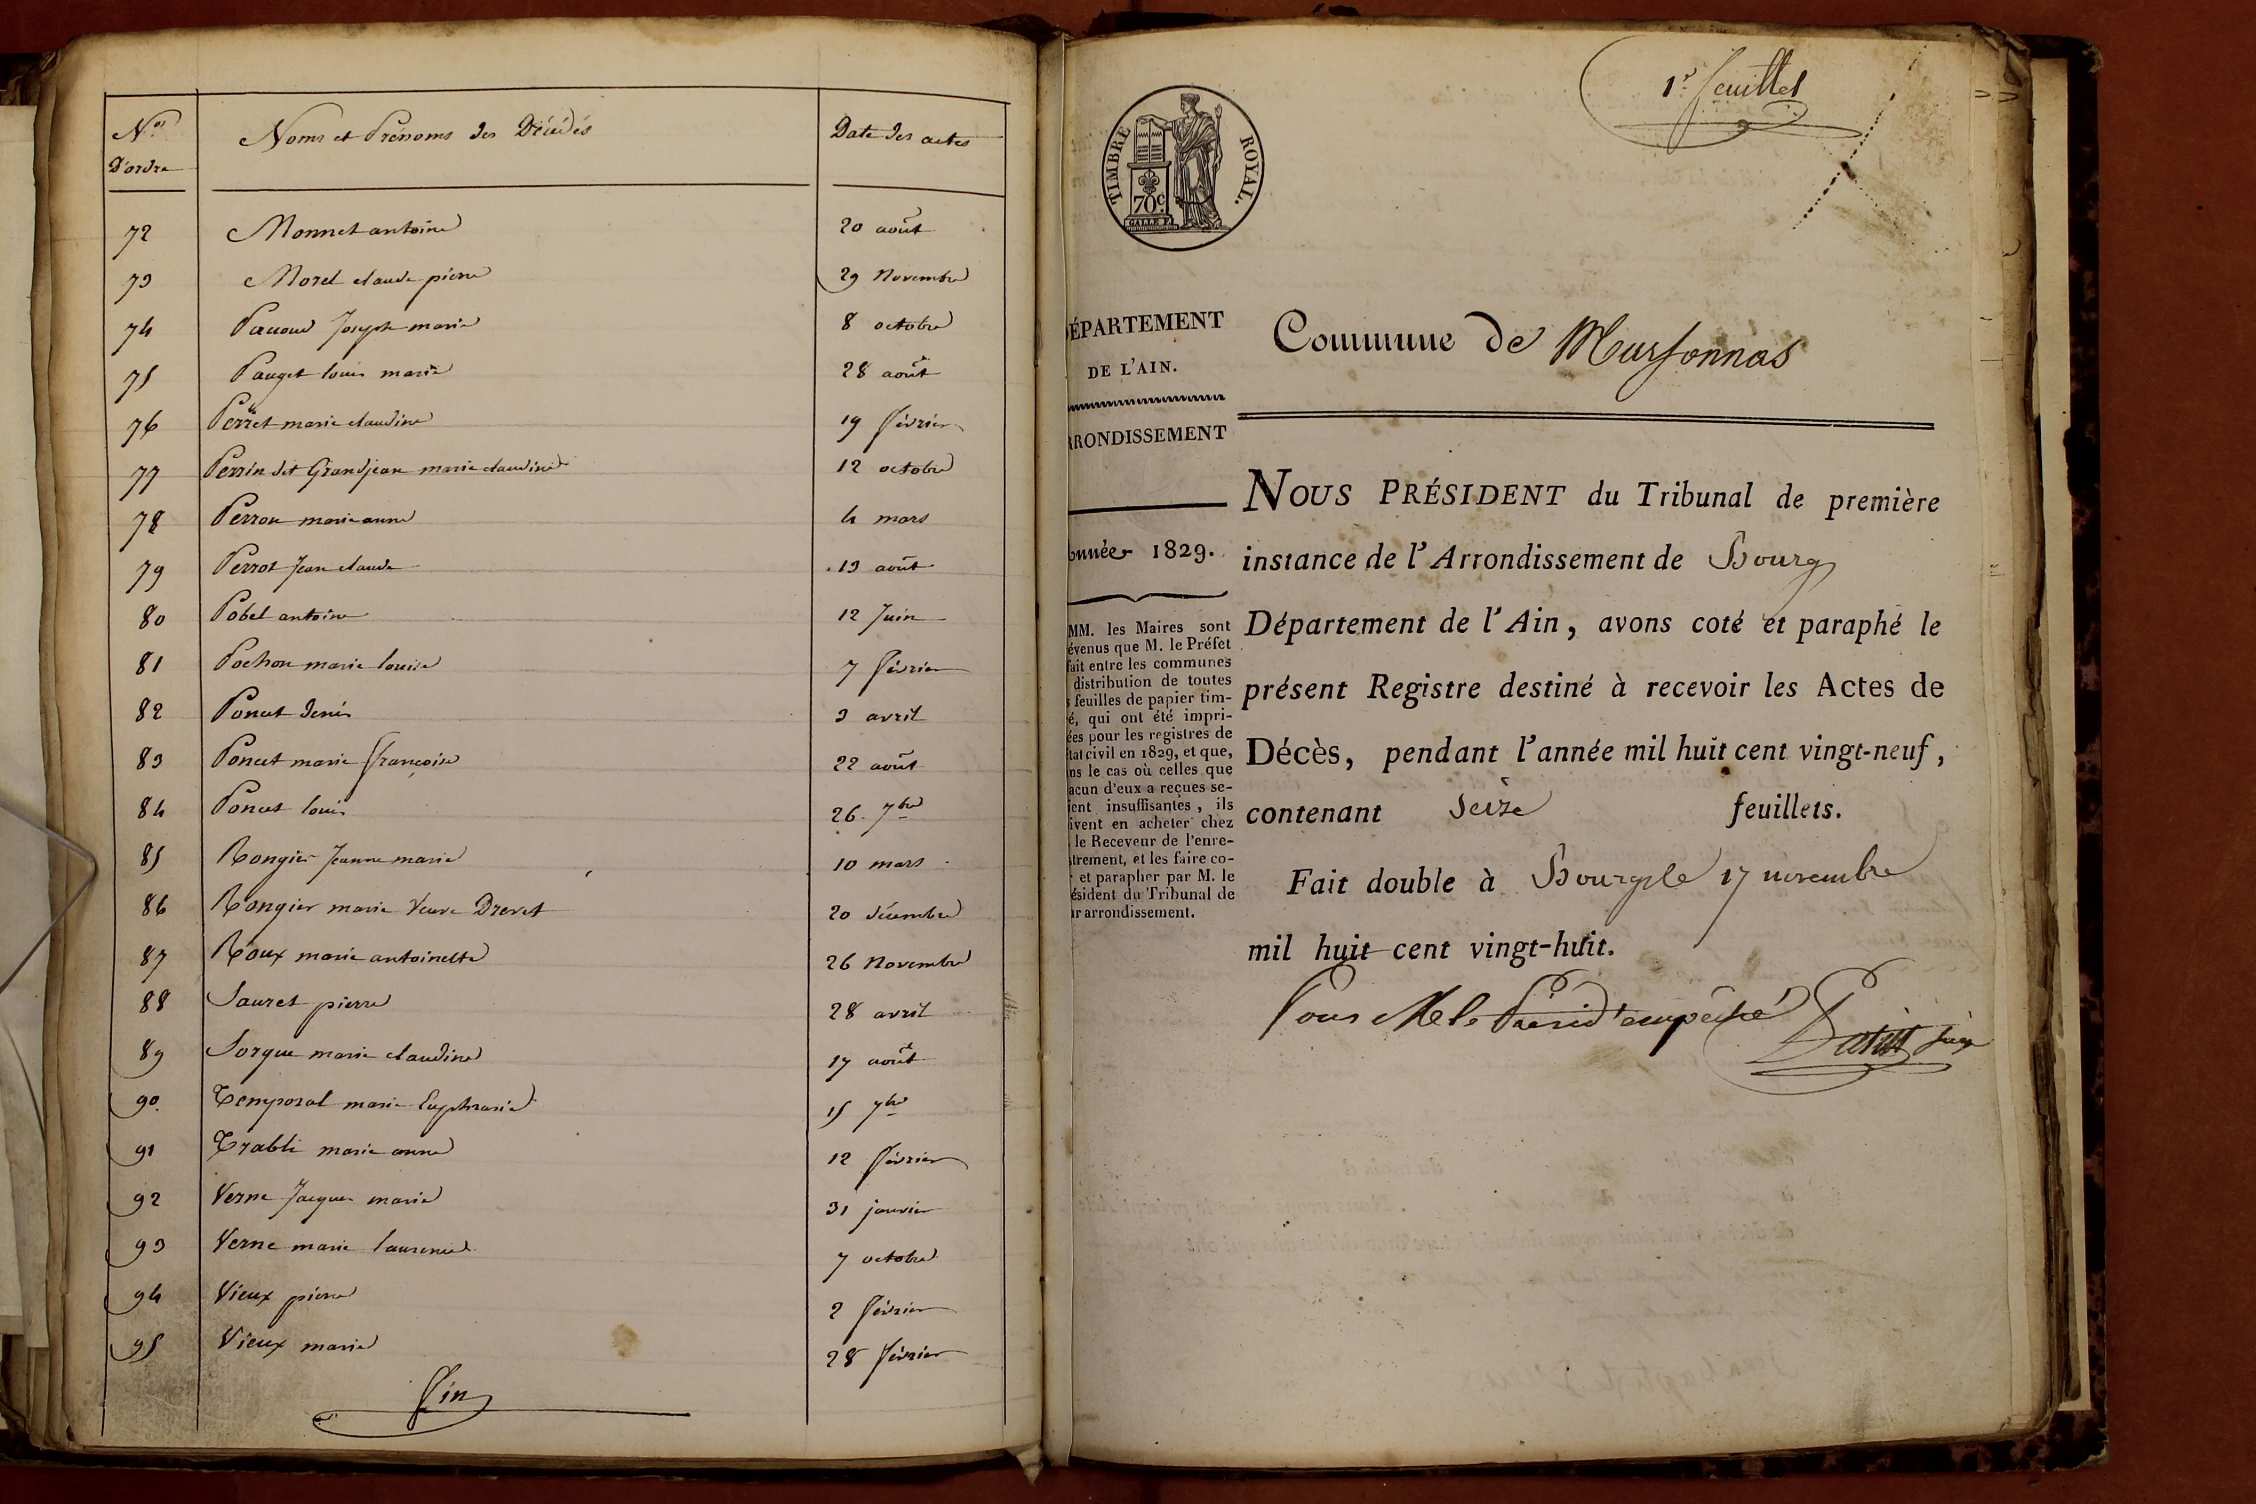 Nos
D'ordre
Noms et Prénoms des Décédés
Date des actes
72 Monnet antoine 20 août
73 Morel claude pierre 29 Novembre
74 Pauoud Joseph marie 8 octobre
75 Pauget louis marie 28 août
76 Perret marie claudine 19 février
77 Perrin dit Grandjean marie claudine 12 octobre
78 Perron marie anne 4 mars
79 Perrot Jean claude 13 août
80 Pobel antoine 12 Juin
81 Pochon marie louise 7 février
82 Poncet denis 3 avril
83 Poncet marie françoise 22 août
84 Poncet louis 26 7bre
85 Rongier Jeanne marie 10 mars
86 Rongier marie Veuve Drevet 20 décembre
87 Roux marie antoinette 26 Novembre
88 Sauret pierre 28 avril
89 Sorgue marie claudine 17 août
90 Temporal marie Euphrasie 15 7bre
91 Trabli marie anne 12 février
92 Verne Jacques marie 31 janvier
93 Verne marie laurence 7 octobre
94 Vieux pierre 2 février
95 Vieux marie 28 février
fin
1er feuillet
TIMBRE ROYAL.
70c.
GALLE F.
ÉPARTEMENT
DE L'AIN.
RRONDISSEMENT
nnée 1829.
MM. les Maires sont
évenus que M. le Préfet
fait entre les communes
distribution de toutes
s feuilles de papier tim-
é, qui ont été impri-
ées pour les registres de
état civil en 1829, et que,
ns le cas où celles que
acun d'eux a reçues se-
ient insuffisantes, ils
ivent en acheter chez
le Receveur de l'enre-
strement, et les faire co-
r et parapher par M. le
ésident du Tribunal de
ur arrondissement.
Commune de Marsonnas
NOUS PRÉSIDENT du Tribunal de première
instance de l'Arrondissement de Bourg
Département de l'Ain, avons coté et paraphé le
présent Registre destiné à recevoir les Actes de
Décès, pendant l'année mil huit cent vingt-neuf,
contenant seize feuillets.
Fait double à Bourg le 17 novembre
mil huit cent vingt-huit.
Pour M. le Présid't empêché
juge